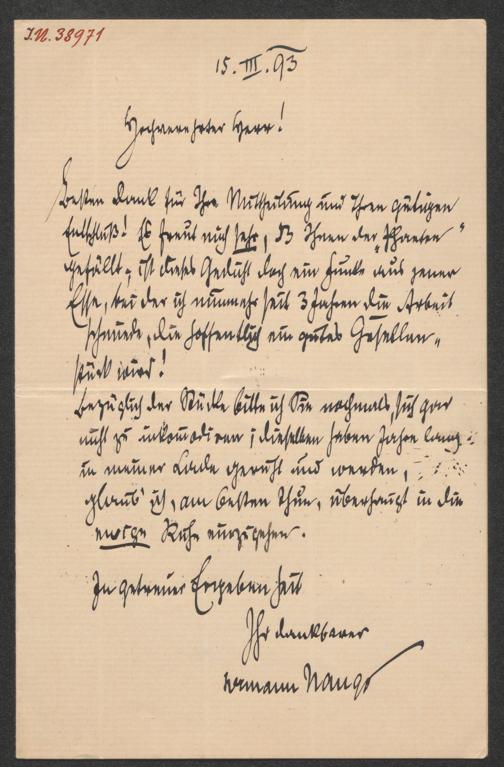 I.N. 38971
15. III. 93
Hochverehrter Herr!
Besten Dank für Ihre Mittheilung und Ihren gütigen
Entschluß! Es freut mich sehr, dß Ihnen der „Phaeton"
gefällt, ist dieses Gedicht doch ein Funke aus jener
Esse, bei der ich nunmehr seit 3 Jahren die Arbeit
schmiede, die hoffentlich ein gutes Gesellen-
stück wird!
Bezüglich der Stücke bitte ich Sie nochmals, sich gar
nicht zu inkomodiren; dieselben haben Jahre lang
in meiner Lade geruht und werden,
glaub' ich, am besten thun, überhaupt in die
ewige Ruhe einzugehen.
In getreuer Ergebenheit
Ihr dankbarer
Hermann Hango